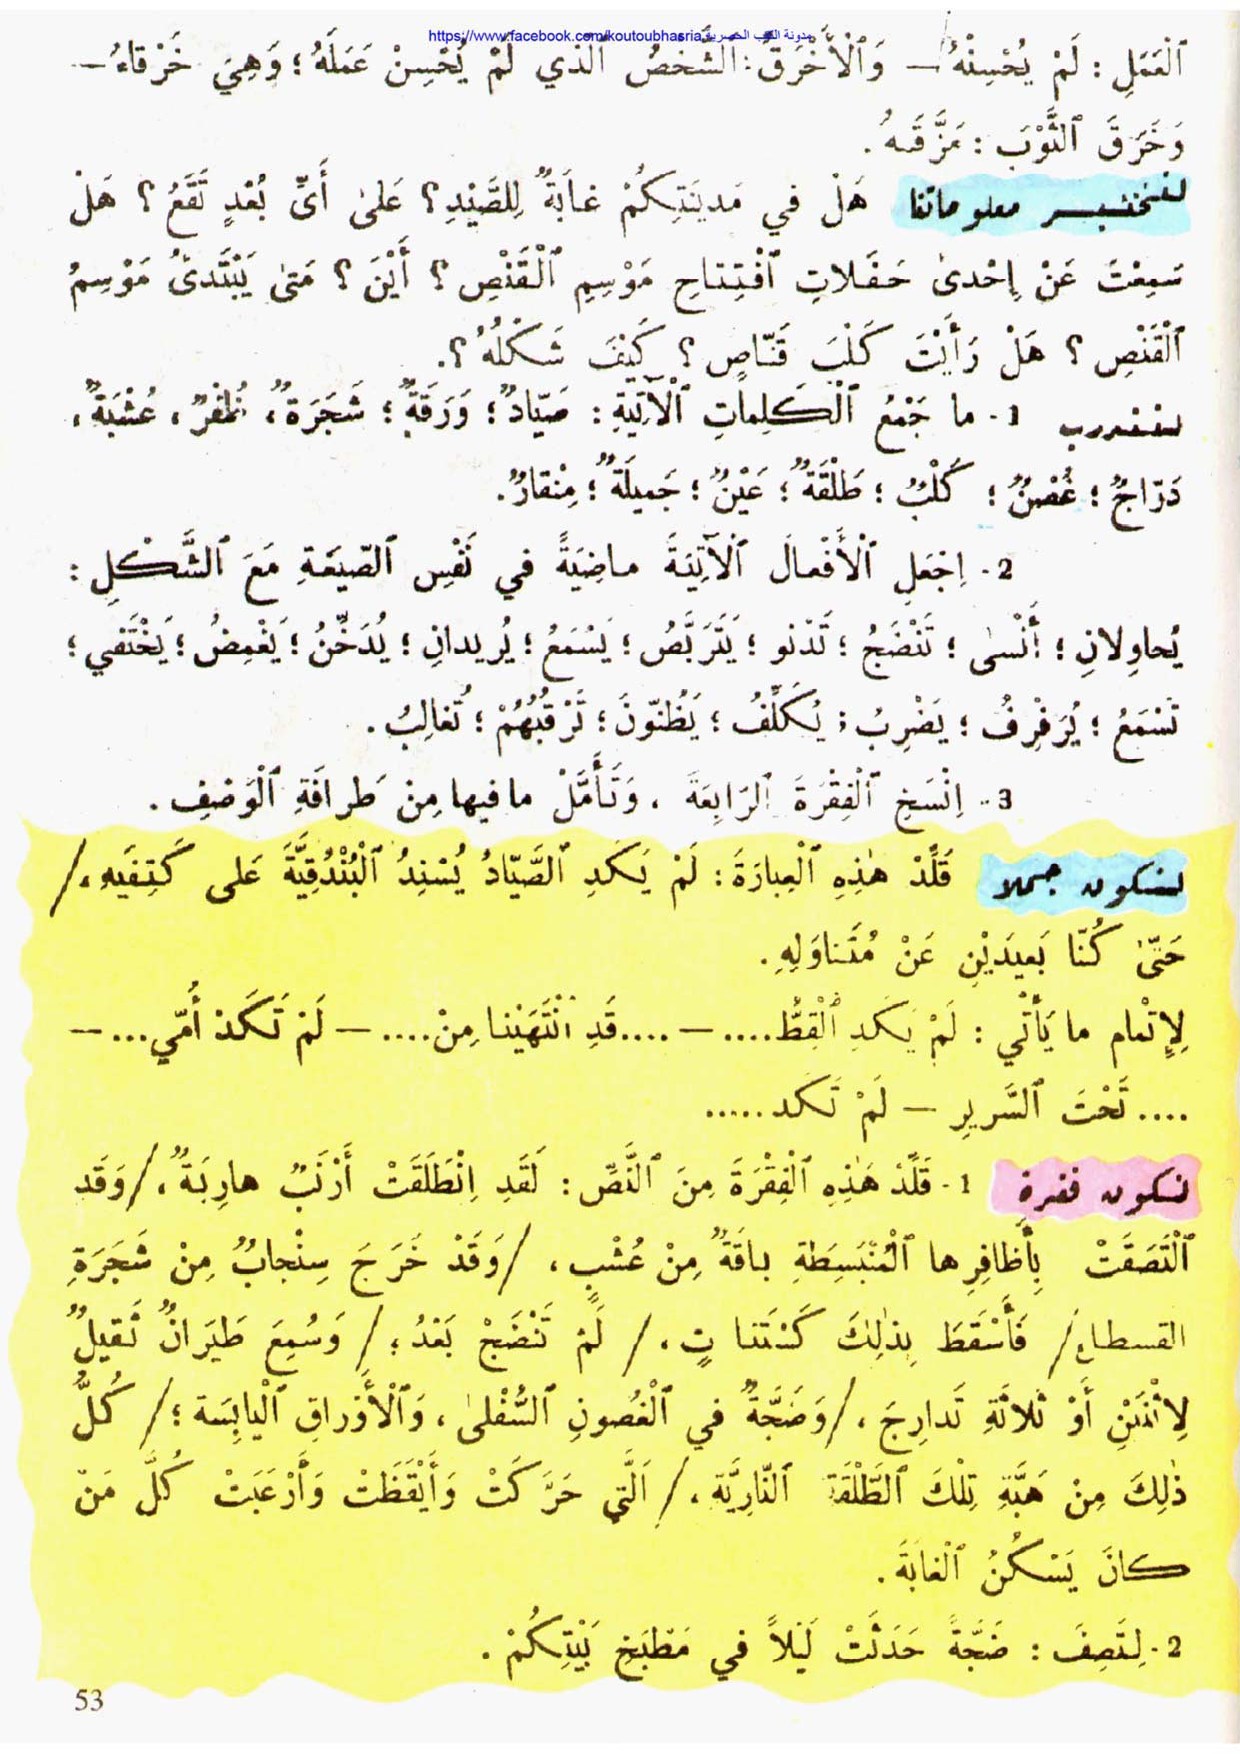 https://www.facebook.com/koutoubhasria مدونة الكتب الحصرية
ٱلْعَمَلِ : لَمْ يُحْسِنْهُ — وَٱلْأَخْرَقُ : ٱلشَّخْصُ ٱلَّذي لَمْ يُحْسِنْ عَمَلَهُ ؛ وَهِيَ خَرْقاءُ —
وَخَرَقَ ٱلثَّوْبَ : مَزَّقَهُ .
لنختبـر معلوماتنا هَلْ في مَدينَتِكُمْ غابَةٌ لِلصَّيْدِ ؟ عَلىٰ أَيِّ بُعْدٍ تَقَعُ ؟ هَلْ
سَمِعْتَ عَنْ إِحْدىٰ حَفَلاتِ ٱفْتِتاحِ مَوْسِمِ ٱلْقَنْصِ ؟ أَيْنَ ؟ مَتىٰ يَبْتَدىُٔ مَوْسِمُ
ٱلْقَنْصِ ؟ هَلْ رَأَيْتَ كَلْبَ قَنّاصٍ ؟ كَيْفَ شَكْلُهُ ؟.
لنتدرب 1 - ما جَمْعُ ٱلْكَلِماتِ ٱلْآتِيَةِ : صَيّادٌ ؛ وَرَقَةٌ ؛ شَجَرَةٌ ، ظُفْرٌ ، عُشْبَةٌ ،
دَرّاجٌ ؛ غُصْنٌ ؛ كَلْبٌ ؛ طَلْقَةٌ ؛ عَيْنٌ ؛ جَميلَةٌ ؛ مِنْقارٌ .
2 - اِجْعَلِ ٱلْأَفْعالَ ٱلْآتِيَةَ ماضِيَةً في نَفْسِ ٱلصّيغَةِ مَعَ ٱلشَّكْلِ :
يُحاوِلانِ ؛ أَنْسىٰ ؛ تَنْضَجُ ؛ تَدْنو ؛ يَتَرَبَّصُ ؛ يَسْمَعُ ؛ يُريدانِ ؛ يُدَخِّنُ ؛ يَغْمِضُ ؛ يَخْتَفي ؛
تَسْمَعُ ؛ يُرَفْرِفُ ؛ يَضْرِبُ ؛ يُكَلِّفُ ؛ يَظُنّونَ ؛ تَرْقُبُهُمْ ؛ تُغالِبُ .
3 - اِنْسَخِ ٱلْفِقْرَةَ ٱلرَابِعَةَ ، وَتَأَمَّلْ ما فيها مِنْ طَرافَةِ ٱلْوَصْفِ .
لنكون جملا قَلِّدْ هٰذِهِ ٱلْعِبارَةَ : لَمْ يَكَدِ ٱلصَّيّادُ يُسْنِدُ ٱلْبُنْدُقِيَّةَ عَلى كَتِفَيْهِ ،/
حَتّىٰ كُنّا بَعيدَيْنِ عَنْ مُتَناوَلِهِ .
لِإِتْمام ما يَأْتي : لَمْ يَكَدِ ٱلْقِطُّ .... — ....قَدِ ٱنْتَهَيْنا مِنْ .... — لَمْ تَكَدْ أُمّي ... —
.... تَحْتَ ٱلسَّريرِ — لَمْ تَكَد .....
نكون فقرة 1 - قَلِّدْ هٰذِهِ ٱلْفِقْرَةَ مِنَ ٱلنَّصِّ : لَقَدِ اِنْطَلَقَتْ أَرْنَبٌ هارِبَةٌ ،/ وَقَد
ٱلْتَصَقَتْ بِأَظافِرِها ٱلْمُنْبَسِطَةِ باقَةٌ مِنْ عُشْبٍ ، /وَقَدْ خَرَجَ سِنْجابٌ مِنْ شَجَرَةِ
القسطاءِ/ فَأَسْقَطَ بِذٰلِكَ كَسْتَنا تٍ ، / لَمْ تَنْضَجْ بَعْدُ ؛ / وَسُمِعَ طَيَرانٌ ثَقيلٌ
لِاثْنَيْنِ أَوْ ثَلاثَةِ تَدارِجَ ،/ وَضَجَّةٌ في ٱلْغُصونِ ٱلسُّفْلىٰ ، وَٱلْأَوْراقِ ٱلْيابِسَة ؛/ كُلُّ
ذٰلِكَ مِنْ هَبَّةِ تِلْكَ ٱلطَّلْقَةِ ٱلنّارِيَّةِ ،/ اَلَّتي حَرَّكَتْ وَأَيْقَظَتْ وَأَرْعَبَتْ كُلَّ مَنْ
كانَ يَسْكُنُ ٱلْغابَةَ .
2 - لِتَصِفَ : ضَجَّةً حَدَثَتْ لَيْلاً في مَطْبَخِ بَيْتِكُمْ .
53